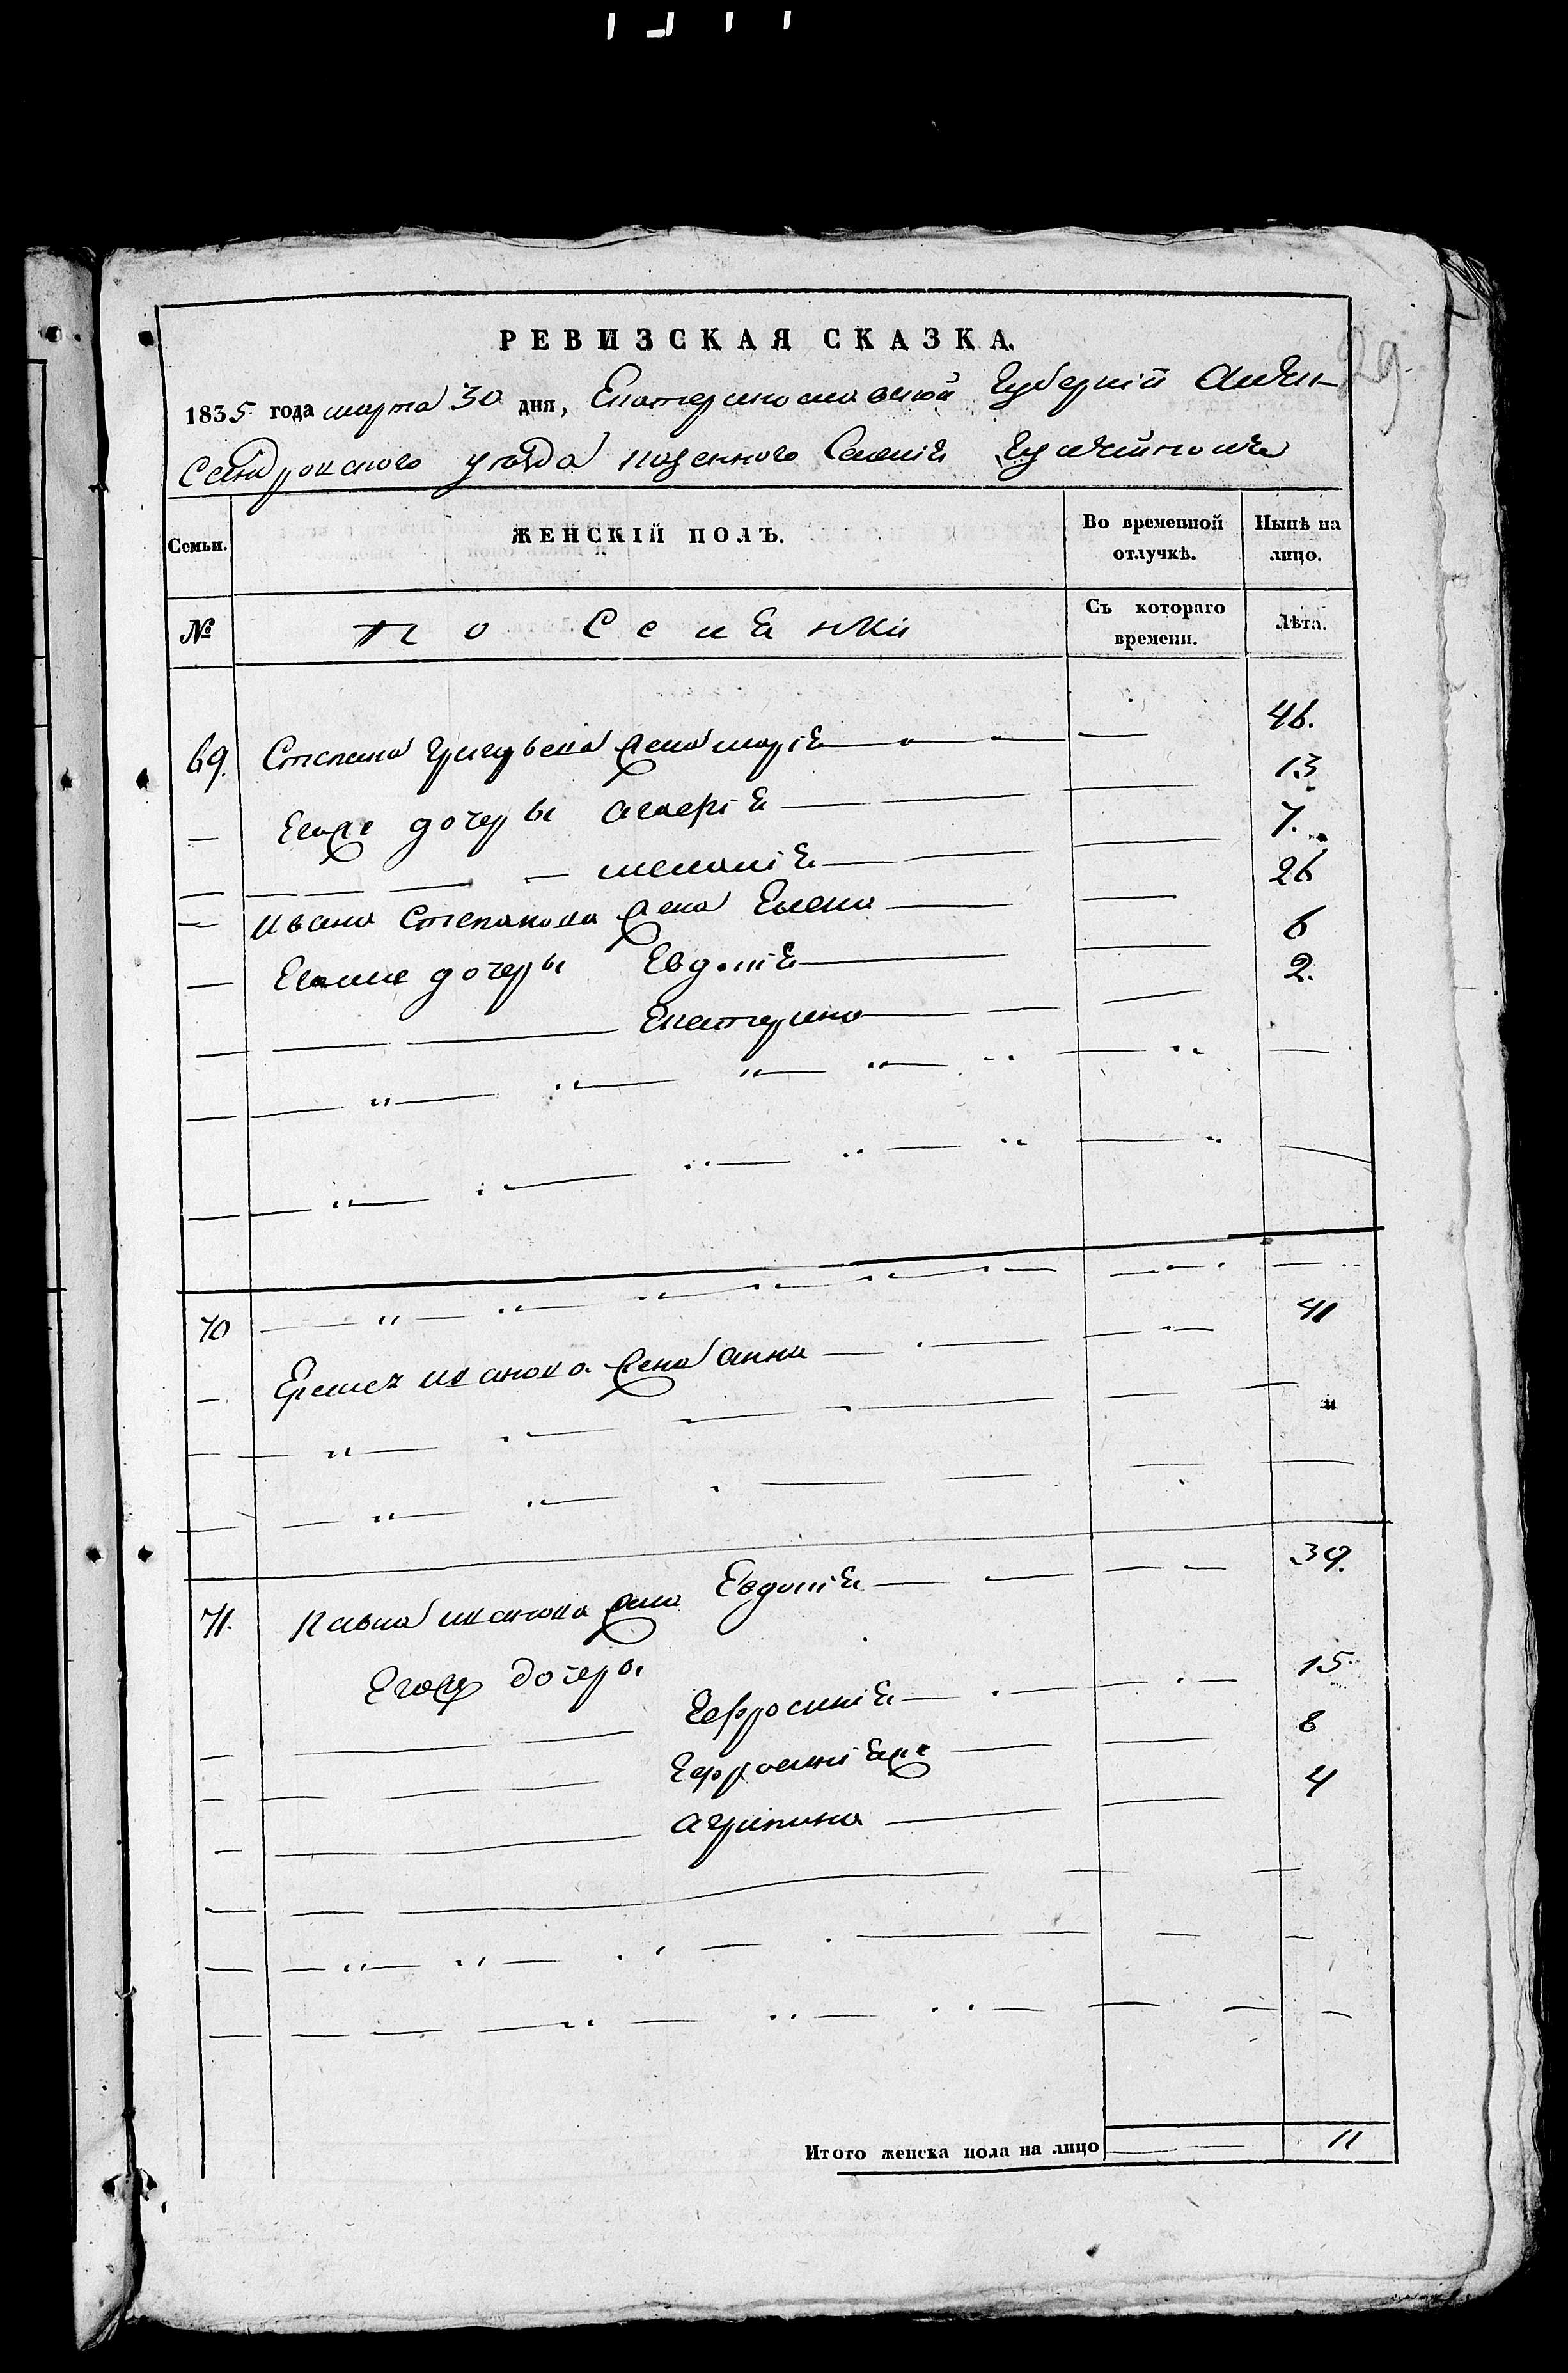 РЕВИЗСКАЯ СКАЗКА.
29.
1835 года марта 30 дня, Екатеринославской Губерніи Алек-
сандровского уезда казенного Селенія
Семьи.
ЖЕНСКІЙ ПОЛЪ.
Во временной отлучкѣ.
Нынѣ на лицо.
№
Поселянки
Съ котораго времени.
Лѣта.
69. Степана Григурьева жена марія — — — 46.
— Егоже дочеры — 13
— — — — — меланія — — 7.
— Ивана Степанова жена Елена — — 26
— Евоже дочеры Евдокія — — 6
— — — Екатерина — — — 2.
70
— Ивановa жена анна — — — 41
71. Павла иванова жена Евдокія — — — — 39.
Егоже дочеры
— — — Ефросинія — — — — 15
— — — Ефросиніяже — — 8
— — агрипина — — 4
Итого женска пола на лицо — — 11